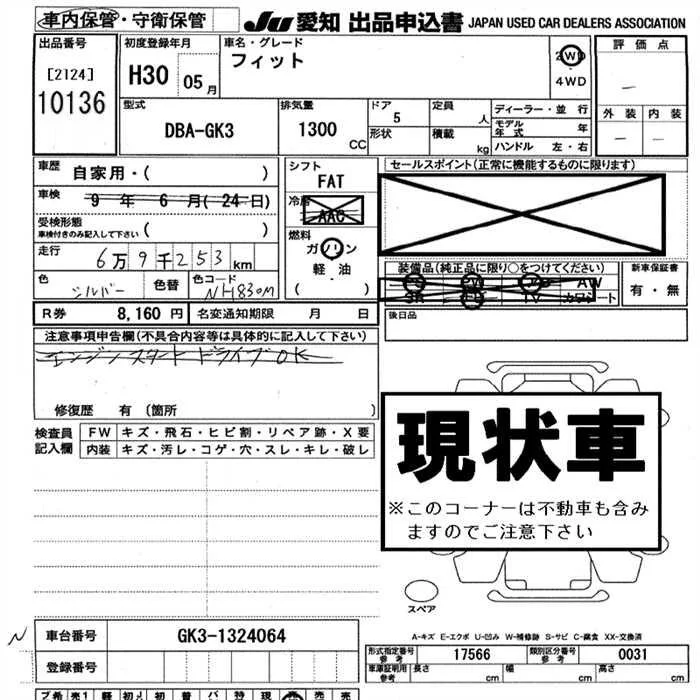 車内保管・守衛保管
JU 愛知 出品申込書 JAPAN USED CAR DEALERS ASSOCIATION
出品番号 初度登録年月 車名・グレード 評価点
[2124] H30 05月 フィット 2WD
10136 4WD ―
型式 排気量 ドア 定員 ディーラー・並行 外装 内装
DBA-GK3 1300 CC 5 人 モデル年式 年 ― ―
形状 積載 kg ハンドル 左・右
車歴 自家用・( ) シフト セールスポイント(正常に機能するものに限ります)
FAT
車検 9年 6月(24日) 冷房
AAC
受検形態 ( )
車検付きのみ記入して下さい 燃料
走行 6万9千253km ガソリン
軽・油
( )
色 シルバー 色替 色コード NH830M
装備品(純正品に限り○をつけてください) 新車保証書
PS PW AW 有・無
SR TV カワシート
R券 8,160円 名変通知期限 月 日 後日品
注意事項申告欄(不具合内容等は具体的に記入して下さい)
エンジンスタートドライブOK
修復歴 有 〔箇所 〕
検査員記入欄 FW キズ・飛石・ヒビ割・リペア跡・X要
内装 キズ・汚レ・コゲ・穴・スレ・キレ・破レ
現状車
※このコーナーは不動車も含みますのでご注意下さい
スペア
A-キズ E-エクボ U-凹み W-補修跡 S-サビ C-腐食 XX-交換済
N 車台番号 GK3-1324064
形式指定番号 参考 17566 類別区分番号 参考 0031
登録番号
車庫証明用 参考 長さ cm 幅 cm 高さ cm